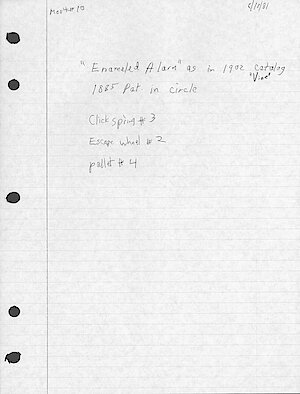 Mov't # 10
5/17/81
"Enameled Alarm" as in 1902 Catalog
"Vine"
1885 Pat. in circle
Click spring # 3
Escape wheel # 2
pallet # 4